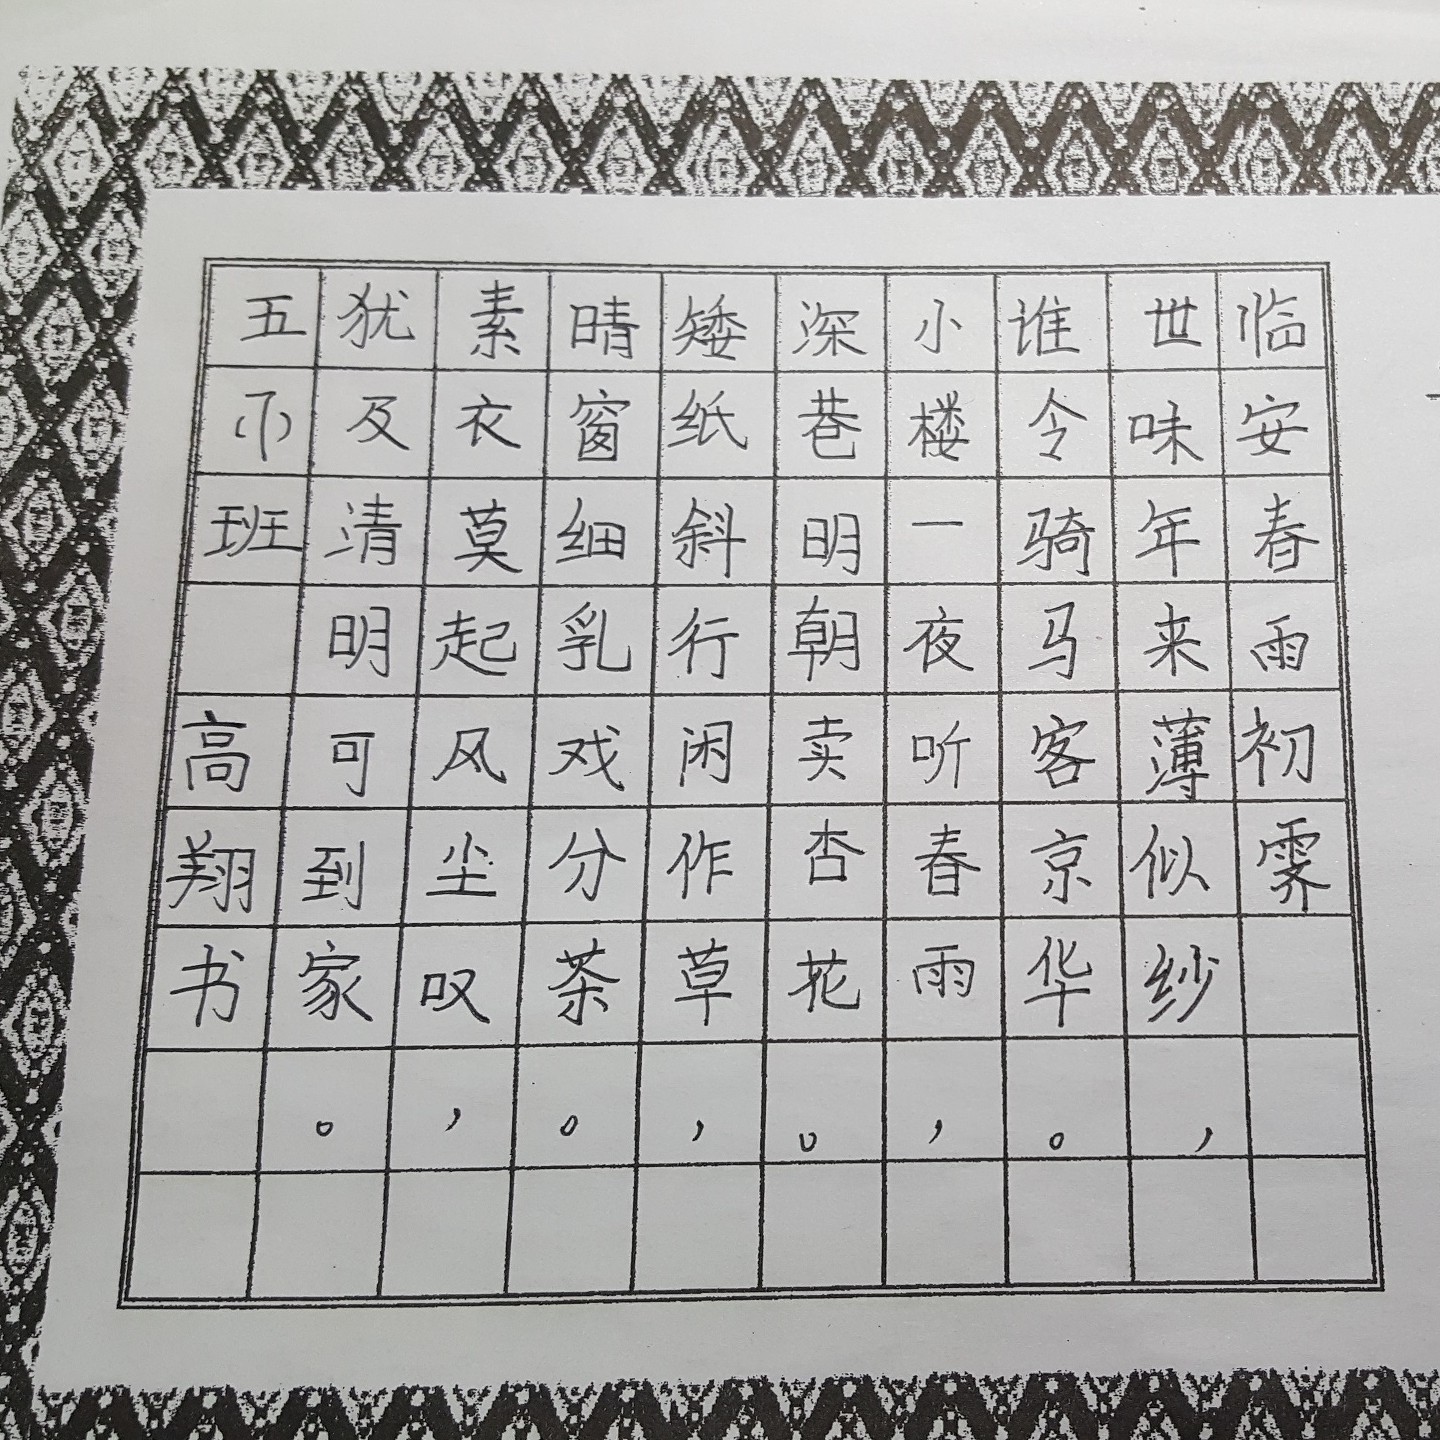 临安春雨初霁
世味年来薄似纱，
谁令骑马客京华。
小楼一夜听春雨，
深巷明朝卖杏花。
矮纸斜行闲作草，
晴窗细乳戏分茶。
素衣莫起风尘叹，
犹及清明可到家。
五班 高翔书